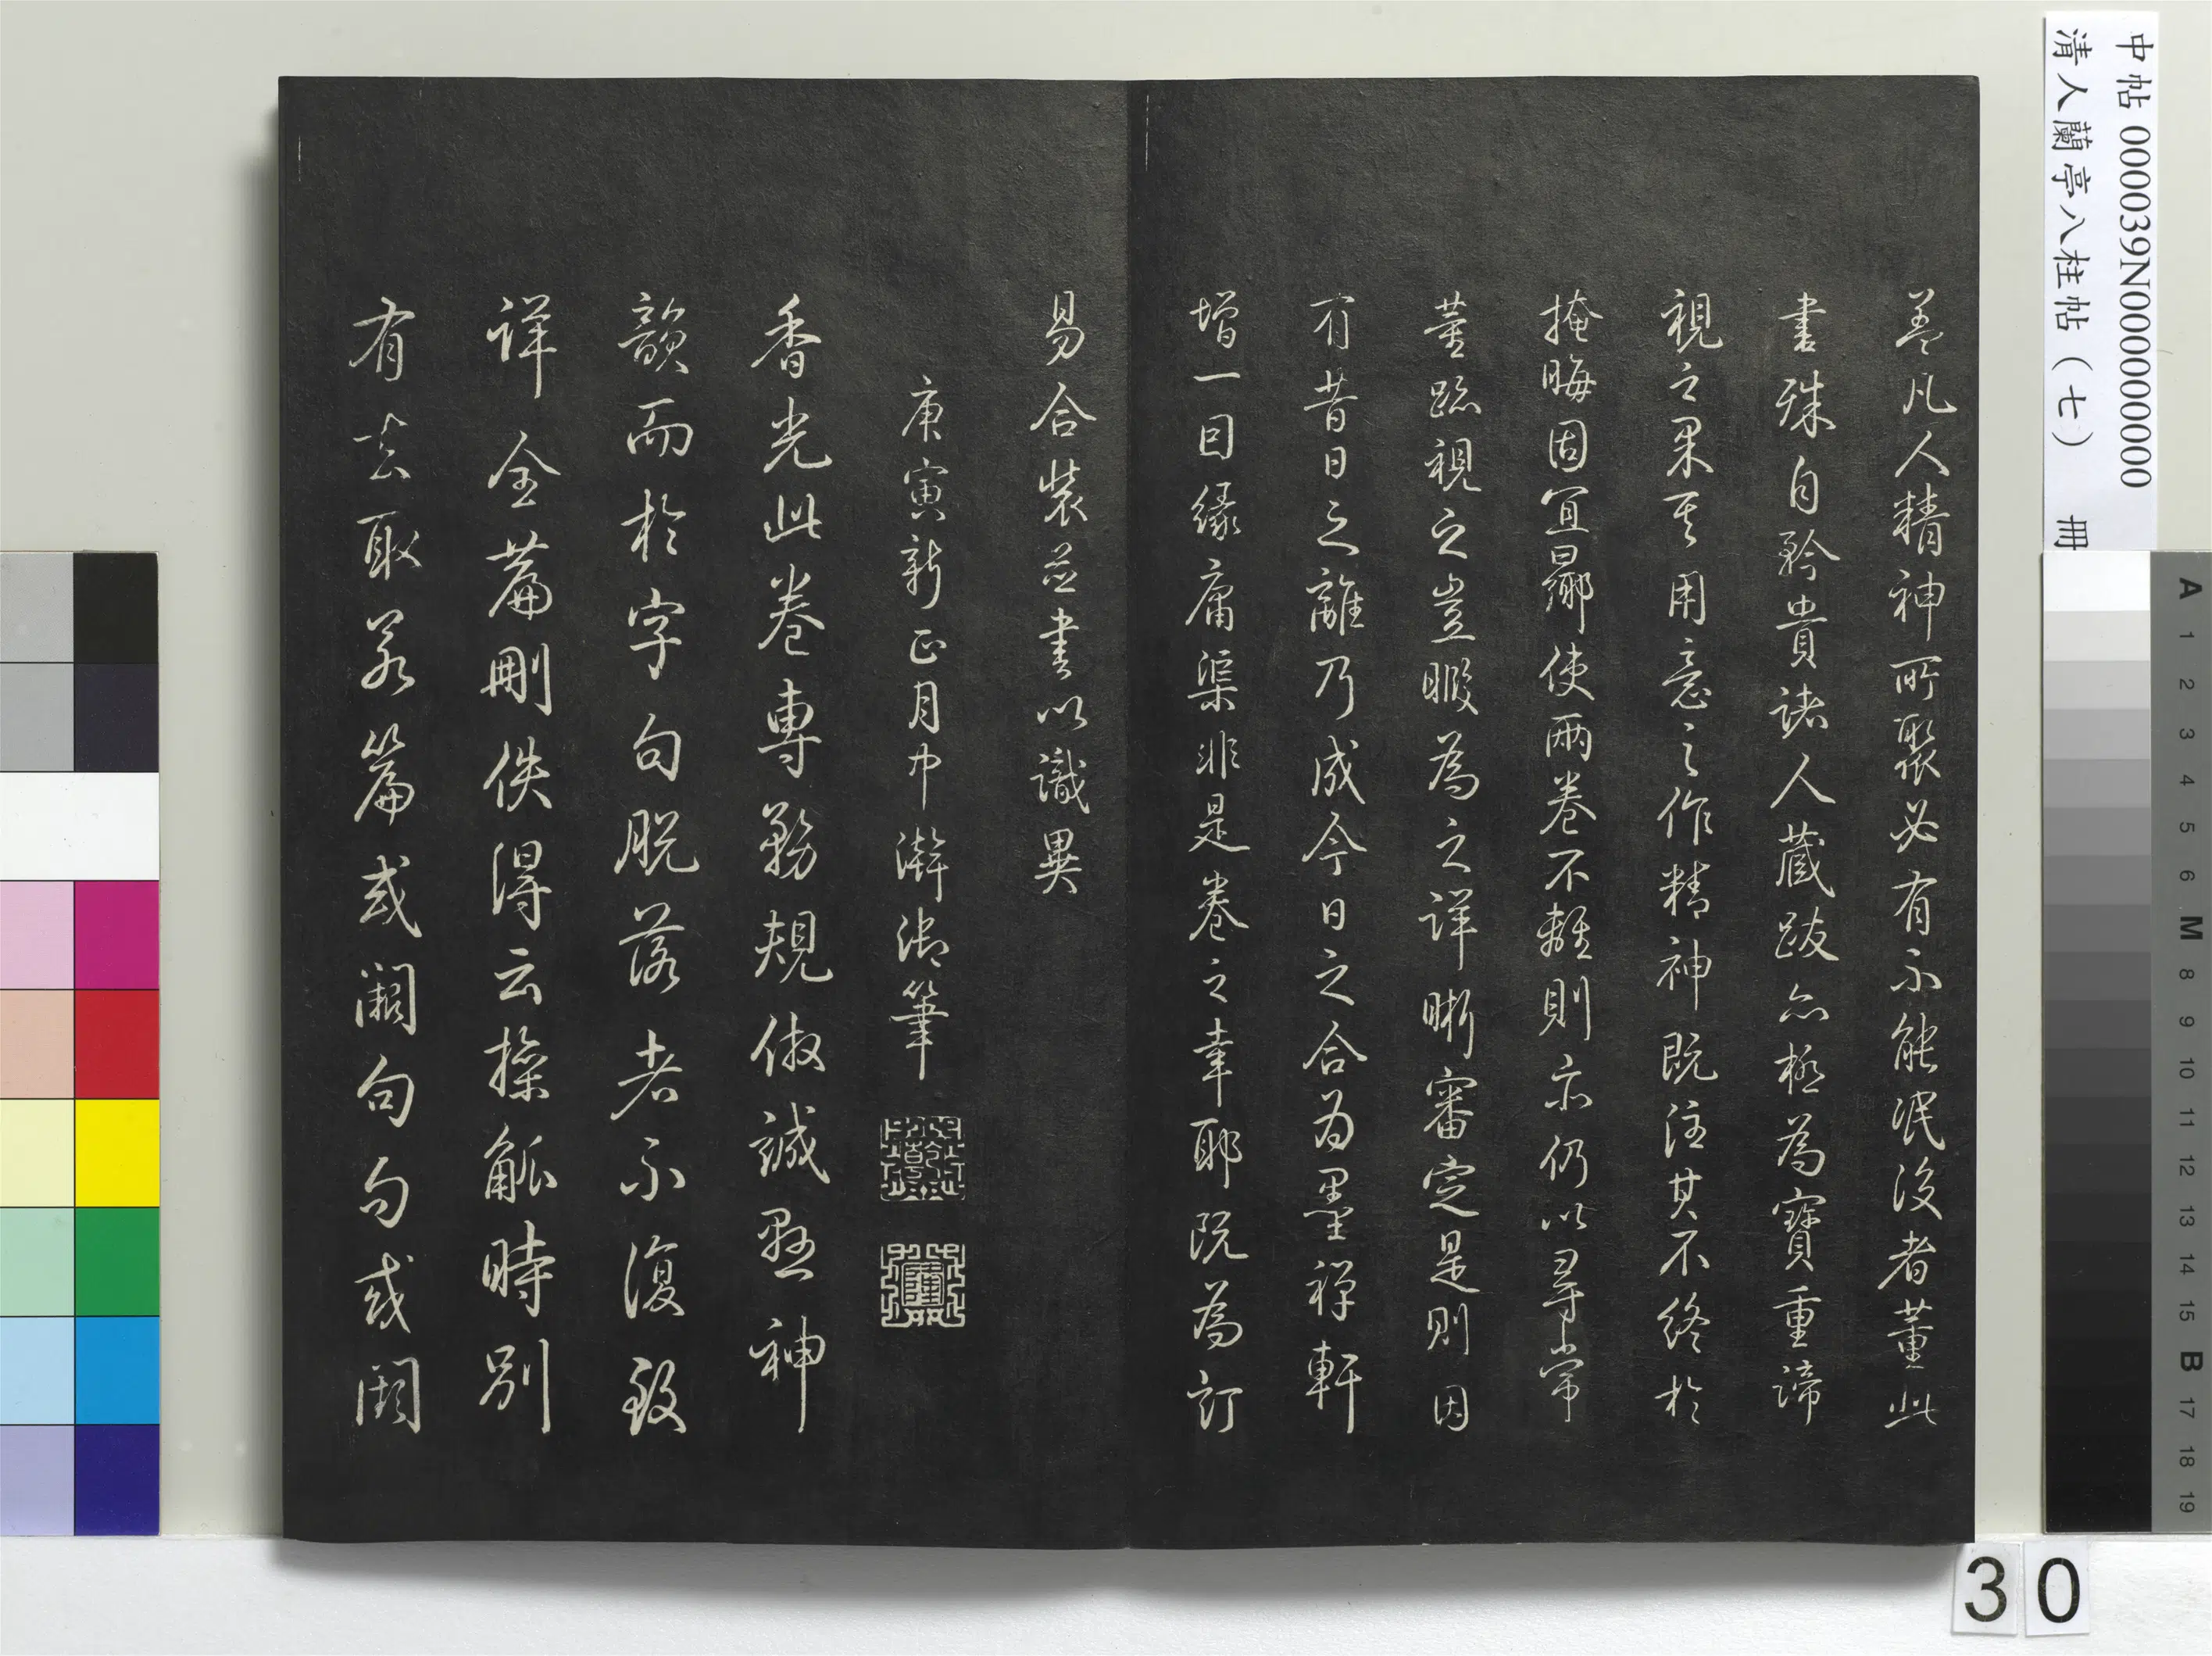 中帖 000039N000000000
清人蘭亭八柱帖（七） 冊
蓋凡人精神所聚必有不能泯没者董此
書殊自矜貴諸人藏跋亦極為寶重諦
視之果其用意之作精神既注其不終於
掩晦固宜曏使兩卷不離則亦仍以尋常
董跡視之豈暇為之詳晰審定是則因
有昔日之離乃成今日之合為墨禪軒
增一因緣庸渠非是卷之幸耶既為訂
易合裝並書以識異
庚寅新正月中澣御筆
香光此卷專務規倣誠懸神
韻而於字句脫落者不復致
詳全篇刪佚得云操觚時別
有去取若篇或闕句句或闕
30
A 1 2 3 4 5 6 M 8 9 10 11 12 13 14 15 B 17 18 19